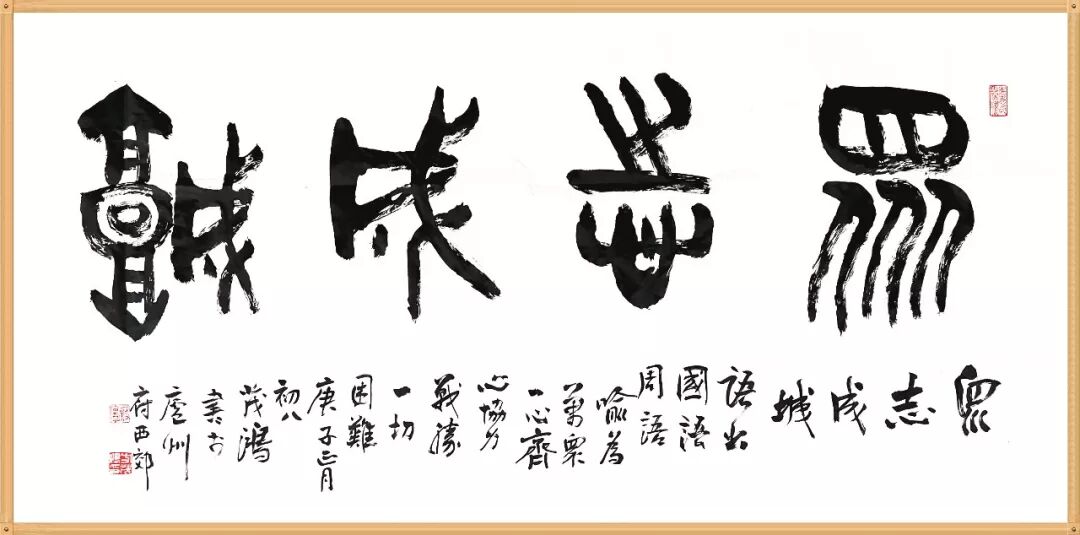 眾志成城
眾
志
成
城
語出
國語
周語
喻為
萬眾
一心齊
心協力
戰勝
一切
困難
庚子正月
初八
茂鴻
書於
廬州
府西郊